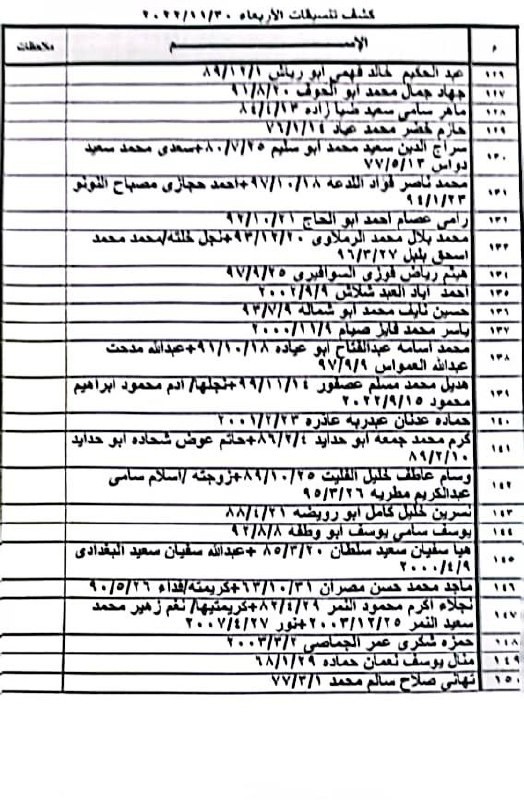 كشف تنسيقات الأربعاء ٢٠٢٢/١١/٣٠
م الإســـــم ملاحظات
١٢٦ عبد الحكيم خالد فهمي ابو رياش ٨٩/١٢/١
١٢٧ جهاد جمال محمد ابو الخوف ٩١/٨/٢٠
١٢٨ ماهر سامي سعيد ضبا زاده ٨٤/٤/١٣
١٢٩ حازم خضر محمد عياد ٧٦/١/١٤
١٣٠ سراج الدين سعيد محمد ابو سليم ٨٠/٧/٢٥+سعدي محمد سعيد
دواس ٧٧/٥/١٣
١٣١ محمد ناصر فؤاد اللدعه ٩٧/١٠/١٨+احمد حجازي مصباح النونو
٩٤/١/٢٣
١٣٢ رامي عصام احمد ابو الحاج ٩٢/١٠/٢١
١٣٣ محمد بلال محمد الرملاوي ٩٣/١٢/٢٠+نجل خلته/محمد محمد
اسحق بلبل ٩٦/٣/٢٧
١٣٤ هيثم رياض فوزي السوافيري ٩٧/٩/٢٥
١٣٥ احمد اياد العبد شلاش ٢٠٠٢/٩/٩
١٣٦ حسين نايف محمد ابو شماله ٩٣/٧/٩
١٣٧ ياسر محمد فايز صيام ٢٠٠٠/١١/٩
١٣٨ محمد اسامه عبدالفتاح ابو عياده ٩١/١٠/١٨+عبدالله مدحت
عبدالله العمواس ٩٧/٩/٩
١٣٩ هديل محمد مسلم عصفور ٩٩/١١/١٤+نجلها/ ادم محمود ابراهيم
محمود ٢٠٢٢/٩/١٥
١٤٠ حماده عدنان عبدربه عاذره ٢٠٠١/٢/٢٣
١٤١ كرم محمد جمعه ابو حدايد ٨٦/٢/٤+حاتم عوض شحاده ابو حدايد
٨٩/٢/١٠
١٤٢ وسام عاطف خليل الفليت ٨٩/١٠/٢٥+زوجته /اسلام سامي
عبدالكريم مطريه ٩٥/٣/٢٦
١٤٣ نسرين خليل كامل ابو رويضه ٨٨/٤/٢١
١٤٤ يوسف سامي يوسف ابو وطفه ٩٢/٨/٨
١٤٥ هيا سفيان سعيد سلطان ٨٥/٣/٢٠ +عبدالله سفيان سعيد البغدادي
٢٠٠٠/٤/٩
١٤٦ ماجد محمد حسن مصران ٦٣/١٠/٣١+كريمته/فداء ٩٠/٥/٢٦
١٤٧ نجلاء اكرم محمود النمر ٨٢/٤/٢٩+كريمتيها/ نغم زهير محمد
سعيد النمر ٢٠٠٣/١٢/٢٥+نور ٢٠٠٧/٤/٢٧
١٤٨ حمزه شكري عمر الجماصي ٢٠٠٣/٣/٢
١٤٩ منال يوسف نعمان حماده ٦٨/١/٢٩
١٥٠ تهاني صلاح سالم محمد ٧٧/٣/١